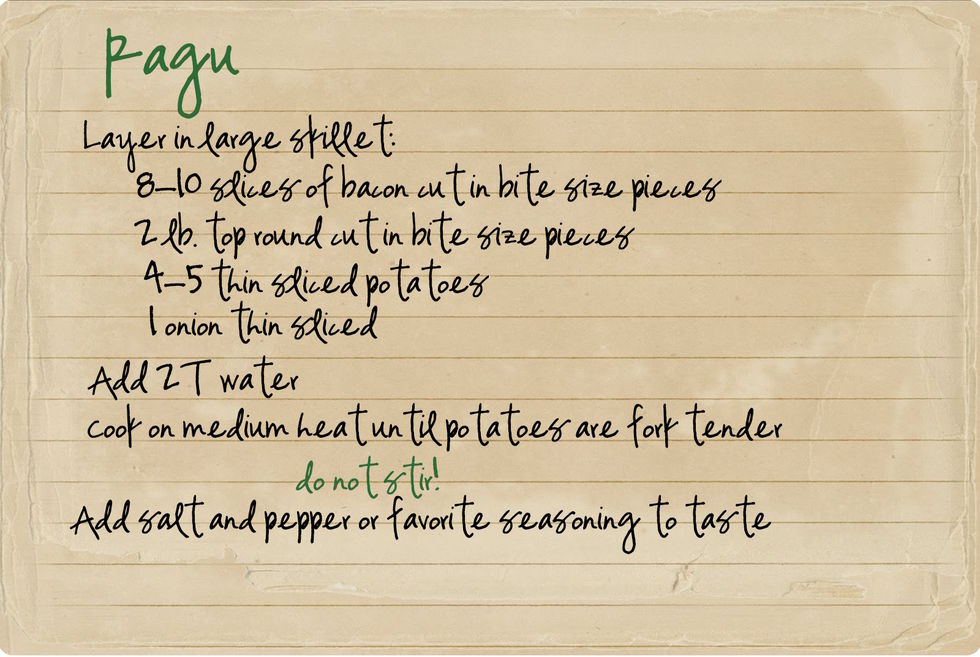 Ragu
Layer in large skillet:
8-10 slices of bacon cut in bite size pieces
2 lb. top round cut in bite size pieces
4-5 thin sliced potatoes
1 onion thin sliced
Add 2 T water
cook on medium heat until potatoes are fork tender
do not stir!
Add salt and pepper or favorite seasoning to taste